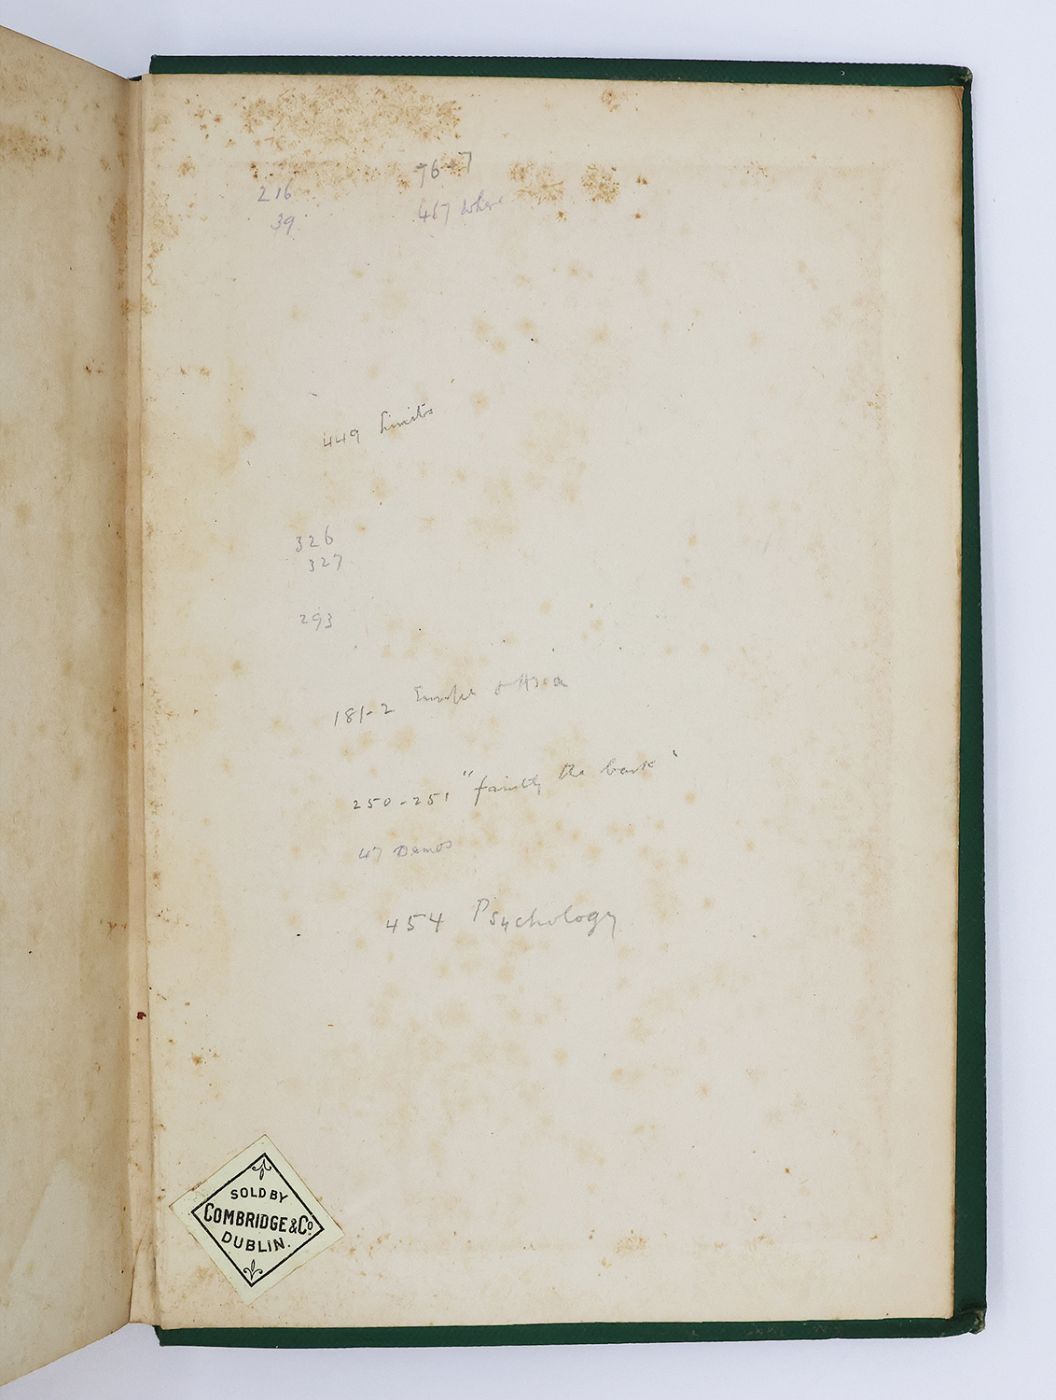 216
39
76-7
467 where
449 limits
326
327
293
181-2 Europe & Asia
250-251 "faintly the bark"
47 Demos
454 Psychology
SOLD BY
COMBRIDGE & Co
DUBLIN.